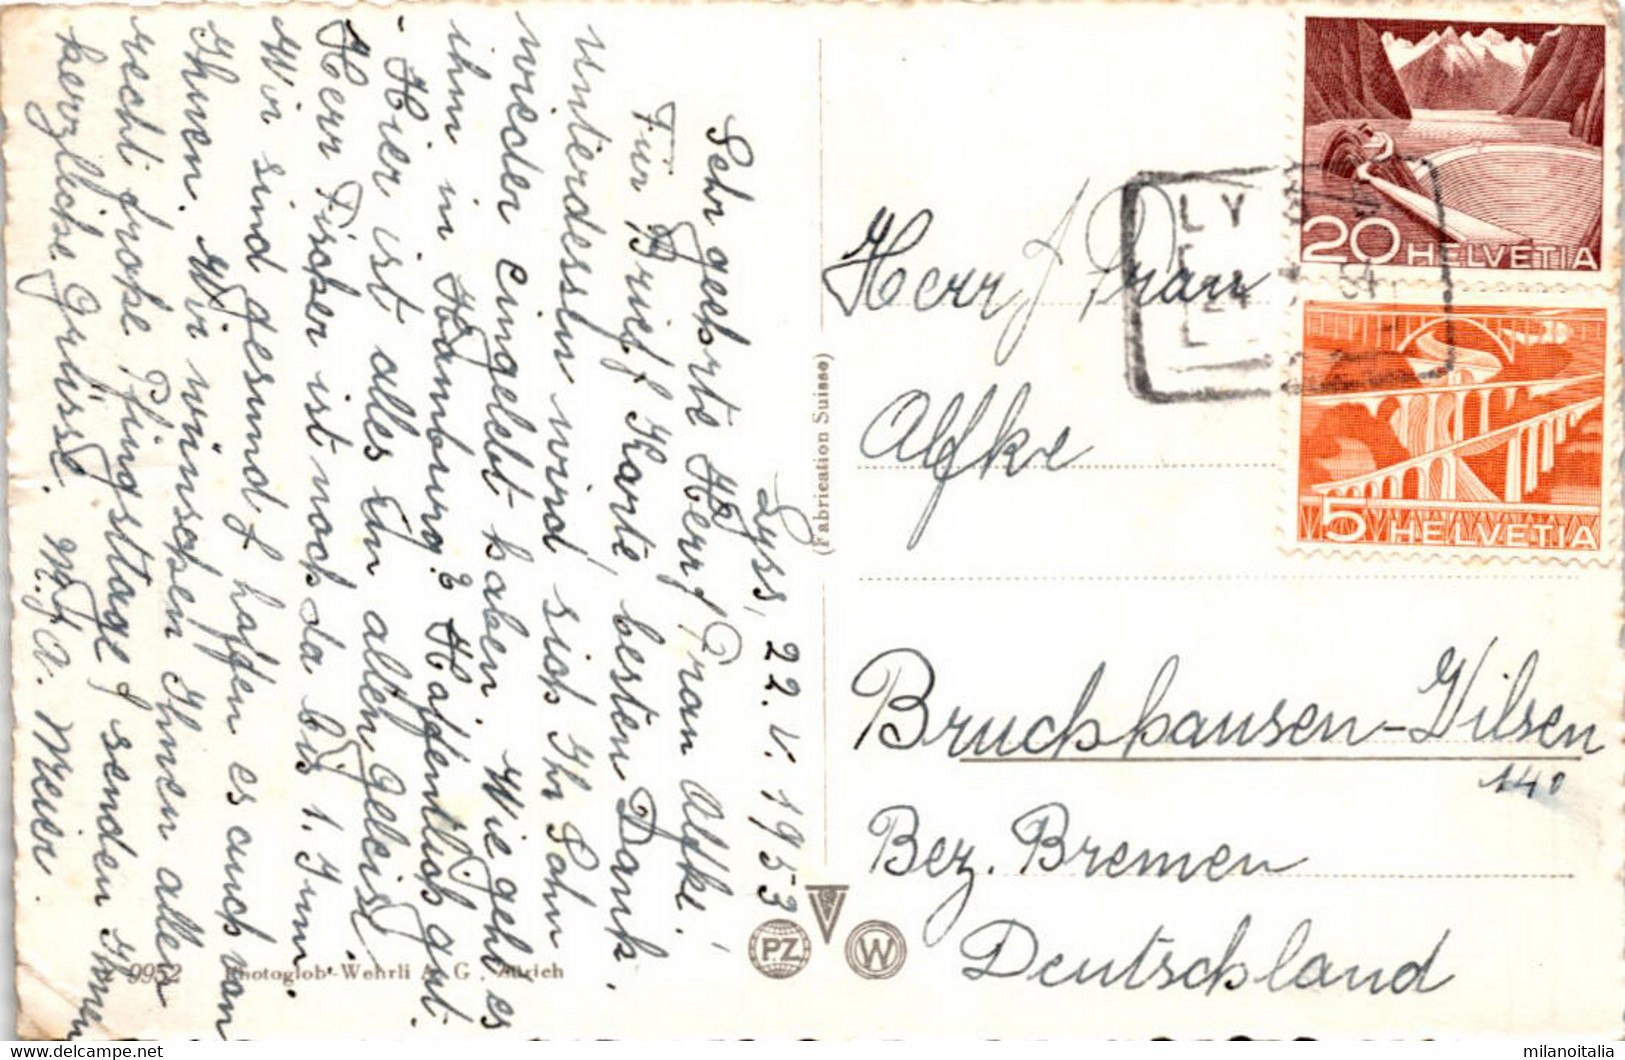 Lyss, 22. V. 1953
Sehr geehrte Herr / Frau Alfke!
Für Brief / Karte, besten Dank.
unterdessen wird sich Ihr Sohn
wieder eingelebt haben. Wie geht es
ihm in Hamburg? Hoffentlich gut.
- Hier ist alles Im alten Geleise,
Herr Fischer ist noch da bis 1. Juni.
Wir sind gesund & hoffen es auch von
Ihnen. Wir wünschen Ihnen allen
recht frohe Pfingsttage & senden Ihnen
herzliche Grüsse.
Meier.
9952 Photoglob-Wehrli A. G., Zürich
(Fabrication Suisse)
PZ
W
Herr / Frau
Alfke
Bruchhausen-Vilsen
140
Bez. Bremen
Deutschland
20 HELVETIA
5 HELVETIA
LY
milanoitalia